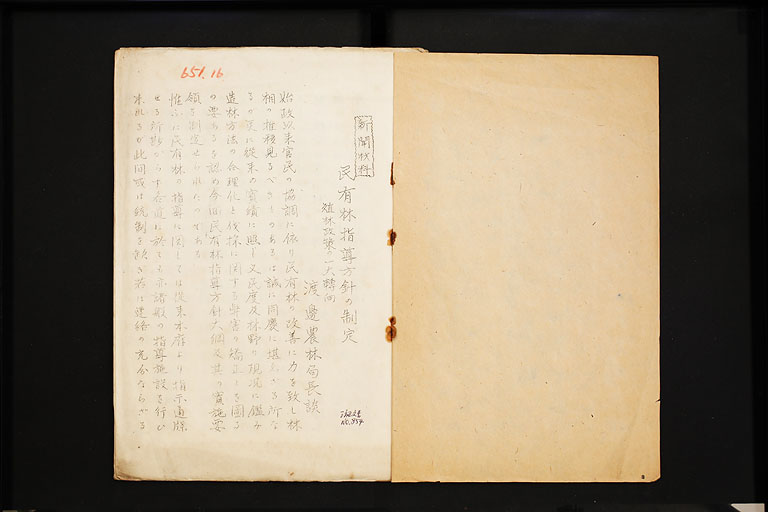 651.16
新聞材料
民有林指導方針の制定
殖林政策の一大轉向
渡邊農林局長談
始政以來官民の協調に依り民有林の改善に力を致し林
相の推移見るべきものあるは誠に同慶に堪えざる所な
るが更に從來の實績に照し又民度及林野の現況に鑑み
造林方法の合理化と伐採に關する弊害の矯正とを圖る
の要あるを認め今回民有林指導方針大綱及其の實施要
領を制定せられたのである
惟ふに民有林の指導に關しては從來本府より指示通牒
せる所尠からず各道に於ても亦諸般の指導施設を行ひ
來れるが此間或は統制を缺き若は連絡の充分ならざる
NO.354